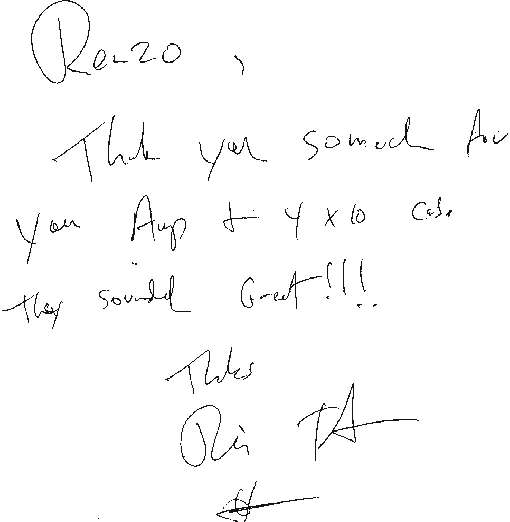 Renzo,
Thank you somuch for
your Amp + 4 x 10 cabs.
they sounded Great!!!!
Thanks